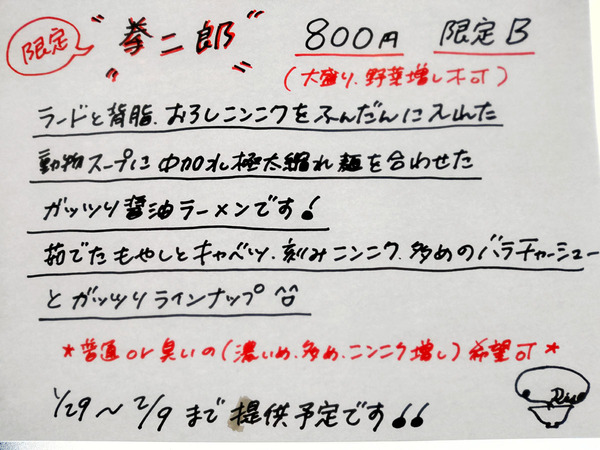 限定 "拳二郎" 800円 限定B
(大盛り.野菜増し不可)
ラードと背脂.おろしニンニクをふんだんに入れた
動物スープに中加水極太縮れ麺を合わせた
ガッツリ醤油ラーメンです!
茹でたもやしとキャベツ.刻みニンニク.多めのバラチャーシュー
とガッツリラインナップ
*普通or臭いの(濃いめ.多め.ニンニク増し)希望可*
1/29~2/9まで提供予定です!!